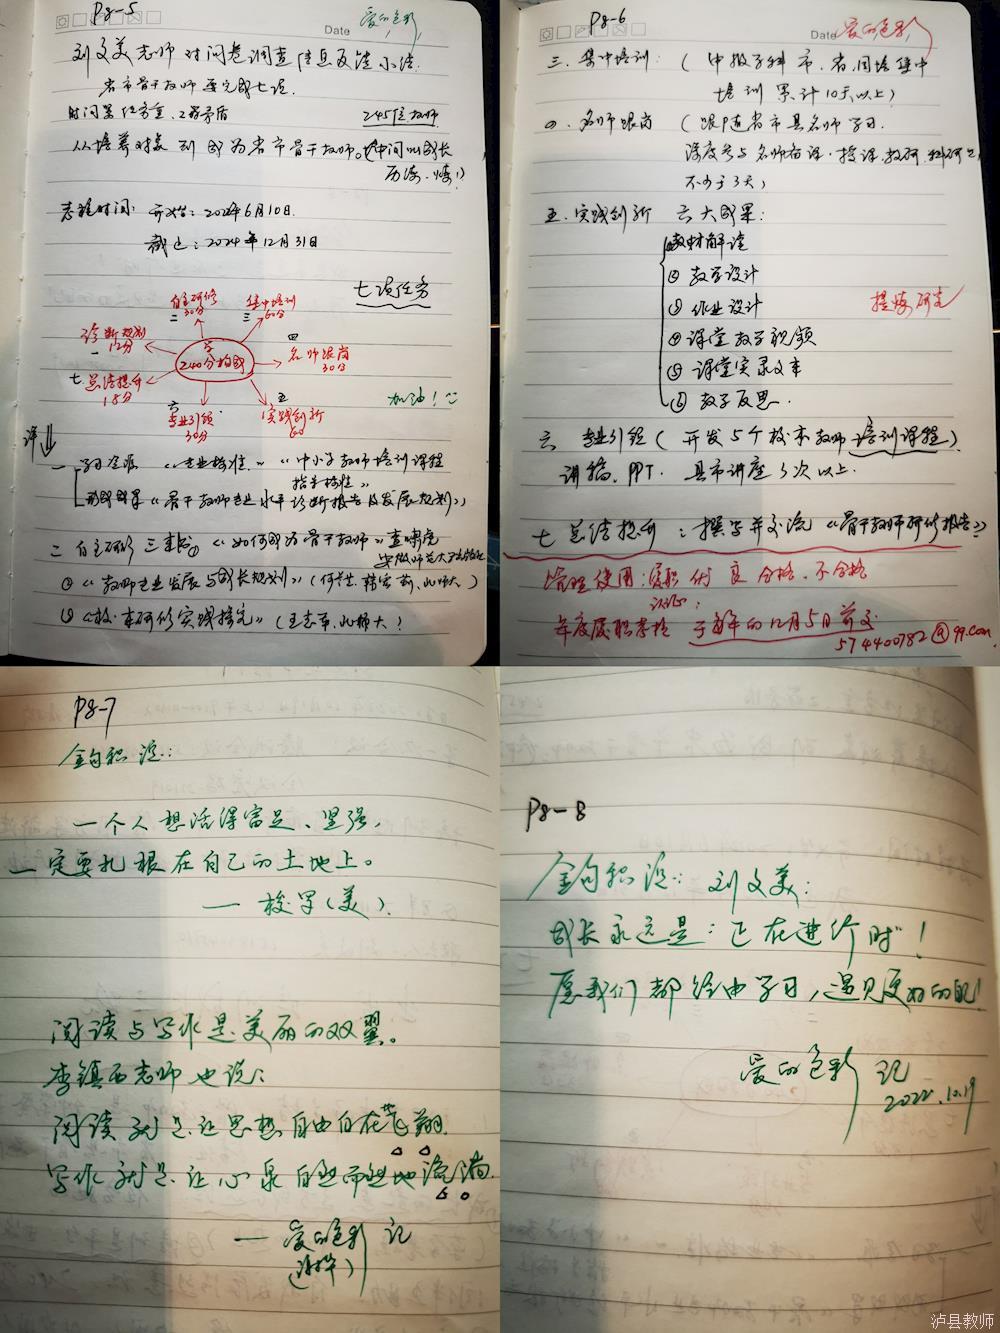 P8-5
Date
爱的色彩
刘文美老师 对问卷调查信息反馈小结
省市骨干教师要完成七项
时间紧任务重、工学矛盾
245位教师
从培养对象到成为省市骨干教师。中间叫成长
历练.
志程时间: 开始: 2022年6月10日.
截止: 2024年12月31日
七项任务
自主研修
二 30分
集中培训
三 60分
诊断规划
一 12分
四
名师跟岗
30分
240分构成
七 总结提升
18分
六
专业引领
30分
五
实践创新
60
加油!
详
一 学习资源 《专业标准》 《中小学教师培训课程
指导标准》
形成成果《骨干教师专业水平诊断报告及发展规划》
二 自主研修 三本书① 《如何成为骨干教师》
安徽师范大学出版社
② 《教师专业发展与成长规划》
③ 《校本研修实践探究》
P8-6
Date
爱的色彩
三. 集中培训: (中报学科市、省、国培集中
培训累计10天以上)
四. 名师跟岗 (跟随省市县名师学习.
深度参与名师备课.授课.教研.科研
不少于3天)
五. 实践创新 六大成果:
教材解读
② 教学设计
③ 作业设计
④ 课堂教学视频
⑤ 课堂实录文本
⑥ 教学反思.
提炼研究
六 专业引领 (开发5个校本教师培训课程)
讲稿、PPT. 县市讲座3次以上.
七 总结提升: 撰写并交流《骨干教师研修报告》
管理使用: 履职 优 良 合格、不合格
年度履职考核 于每年的12月5日前交
574400782@qq.com
P8-7
金句积淀:
一个人想活得富足、坚强,
一定要扎根在自己的土地上。
— 梭罗(美).
阅读与写作是美丽的双翼。
李镇西老师也说:
阅读就是让思想自由自在飞翔
写作就是让心泉自然而然地流淌.
— 爱的色彩 记
P8-8
金句积淀: 刘文美:
成长永远是: 正在进行时!
愿我们都经由学习,遇见更好的自己!
爱的色彩 记
2022.10.19
泸县教师